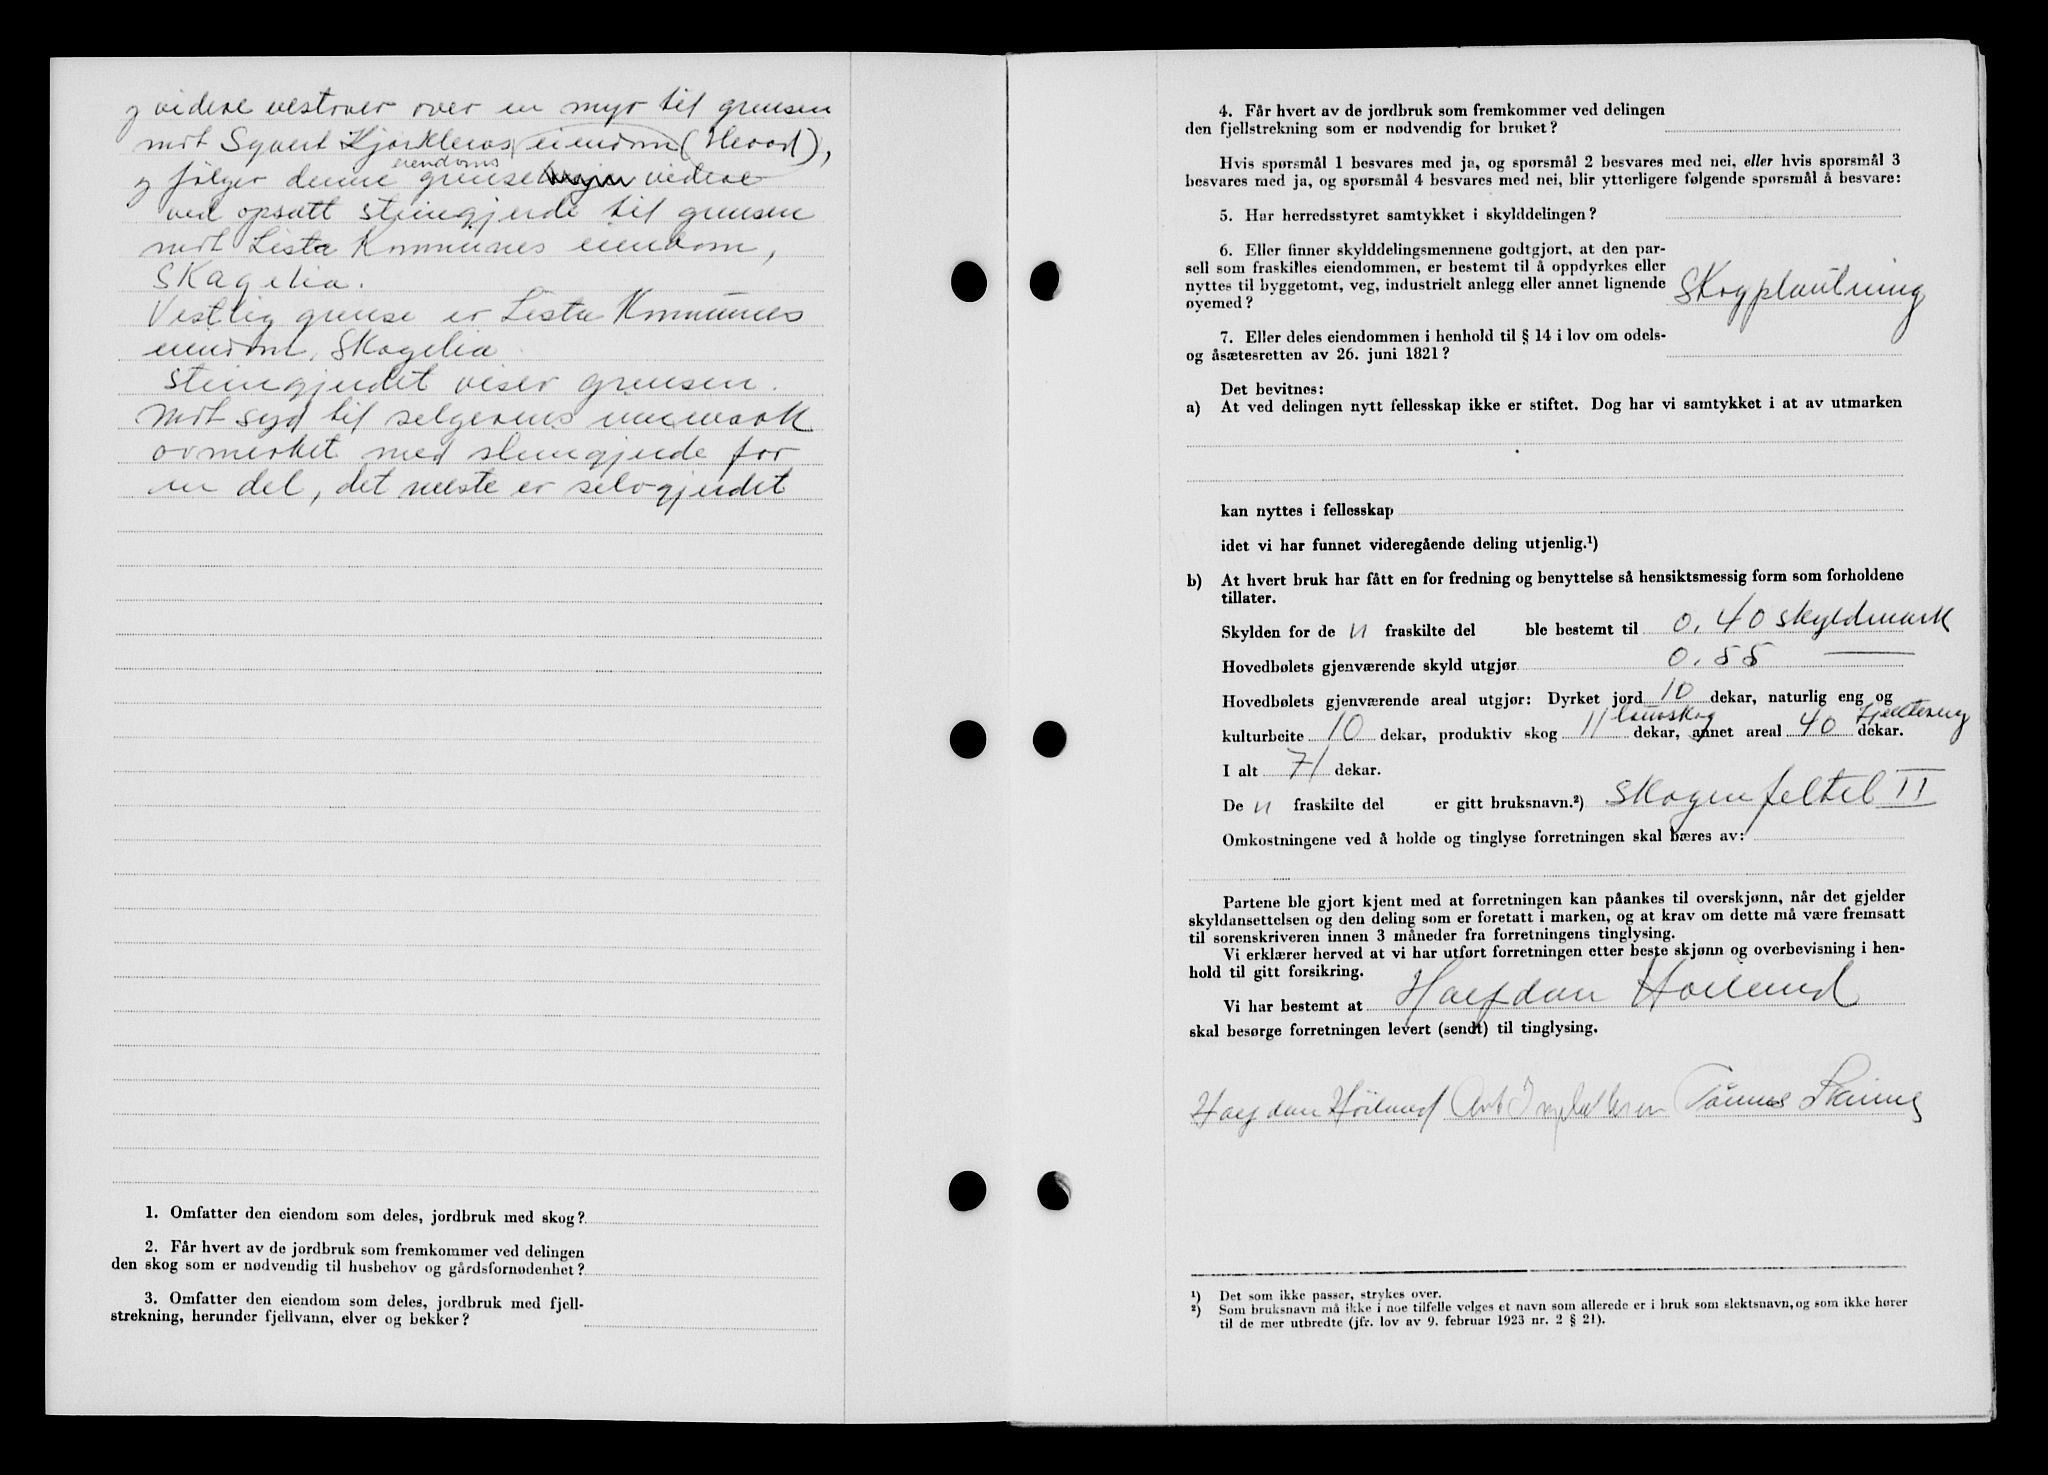 og videre vestover over en myr til grensen
mot Syvert Kjørkleivs eiendom (Heood),
eiendoms
og følger denne grense videre
ved opsatt steingjerde til grensen
mot Lista Kommunes eiendom,
Skagelia.
Vestlig grense er Lista Kommunes
eiendom, Skagelia
Steingjerdet viser grensen.
Mot syd til selgerens innmark
avmerket med steingjerde for
en del, det meste er selvgjerdet
1. Omfatter den eiendom som deles, jordbruk med skog?
2. Får hvert av de jordbruk som fremkommer ved delingen
den skog som er nødvendig til husbehov og gårdsfornødenhet?
3. Omfatter den eiendom som deles, jordbruk med fjell-
strekning, herunder fjellvann, elver og bekker?
4. Får hvert av de jordbruk som fremkommer ved delingen
den fjellstrekning som er nødvendig for bruket?
Hvis spørsmål 1 besvares med ja, og spørsmål 2 besvares med nei, eller hvis spørsmål 3
besvares med ja, og spørsmål 4 besvares med nei, blir ytterligere følgende spørsmål å besvare:
5. Har herredsstyret samtykket i skylddelingen?
6. Eller finner skylddelingsmennene godtgjort, at den par-
sell som fraskilles eiendommen, er bestemt til å oppdyrkes eller
nyttes til byggetomt, veg, industrielt anlegg eller annet lignende
øyemed? Skogplantning
7. Eller deles eiendommen i henhold til § 14 i lov om odels-
og åsætesretten av 26. juni 1821?
Det bevitnes:
a) At ved delingen nytt fellesskap ikke er stiftet. Dog har vi samtykket i at av utmarken
kan nyttes i fellesskap
idet vi har funnet videregående deling utjenlig.¹)
b) At hvert bruk har fått en for fredning og benyttelse så hensiktsmessig form som forholdene
tillater.
Skylden for de n fraskilte del ble bestemt til 0.40 skyldmark
Hovedbølets gjenværende skyld utgjør 0.55 —
Hovedbølets gjenværende areal utgjør: Dyrket jord 10 dekar, naturlig eng og
kulturbeite 10 dekar, produktiv skog 11 lauvskog dekar, annet areal 40 dekar.
I alt 71 dekar.
De n fraskilte del er gitt bruksnavn.²) Skogenfeltet II
Omkostningene ved å holde og tinglyse forretningen skal bæres av:
Partene ble gjort kjent med at forretningen kan påankes til overskjønn, når det gjelder
skyldansettelsen og den deling som er foretatt i marken, og at krav om dette må være fremsatt
til sorenskriveren innen 3 måneder fra forretningens tinglysing.
Vi erklærer herved at vi har utført forretningen etter beste skjønn og overbevisning i hen-
hold til gitt forsikring.
Vi har bestemt at Halfdan Høilund
skal besørge forretningen levert (sendt) til tinglysing.
Halfdan Høilund Tønnes
¹) Det som ikke passer, strykes over.
²) Som bruksnavn må ikke i noe tilfelle velges et navn som allerede er i bruk som slektsnavn, og som ikke hører
til de mer utbredte (jfr. lov av 9. februar 1923 nr. 2 § 21).